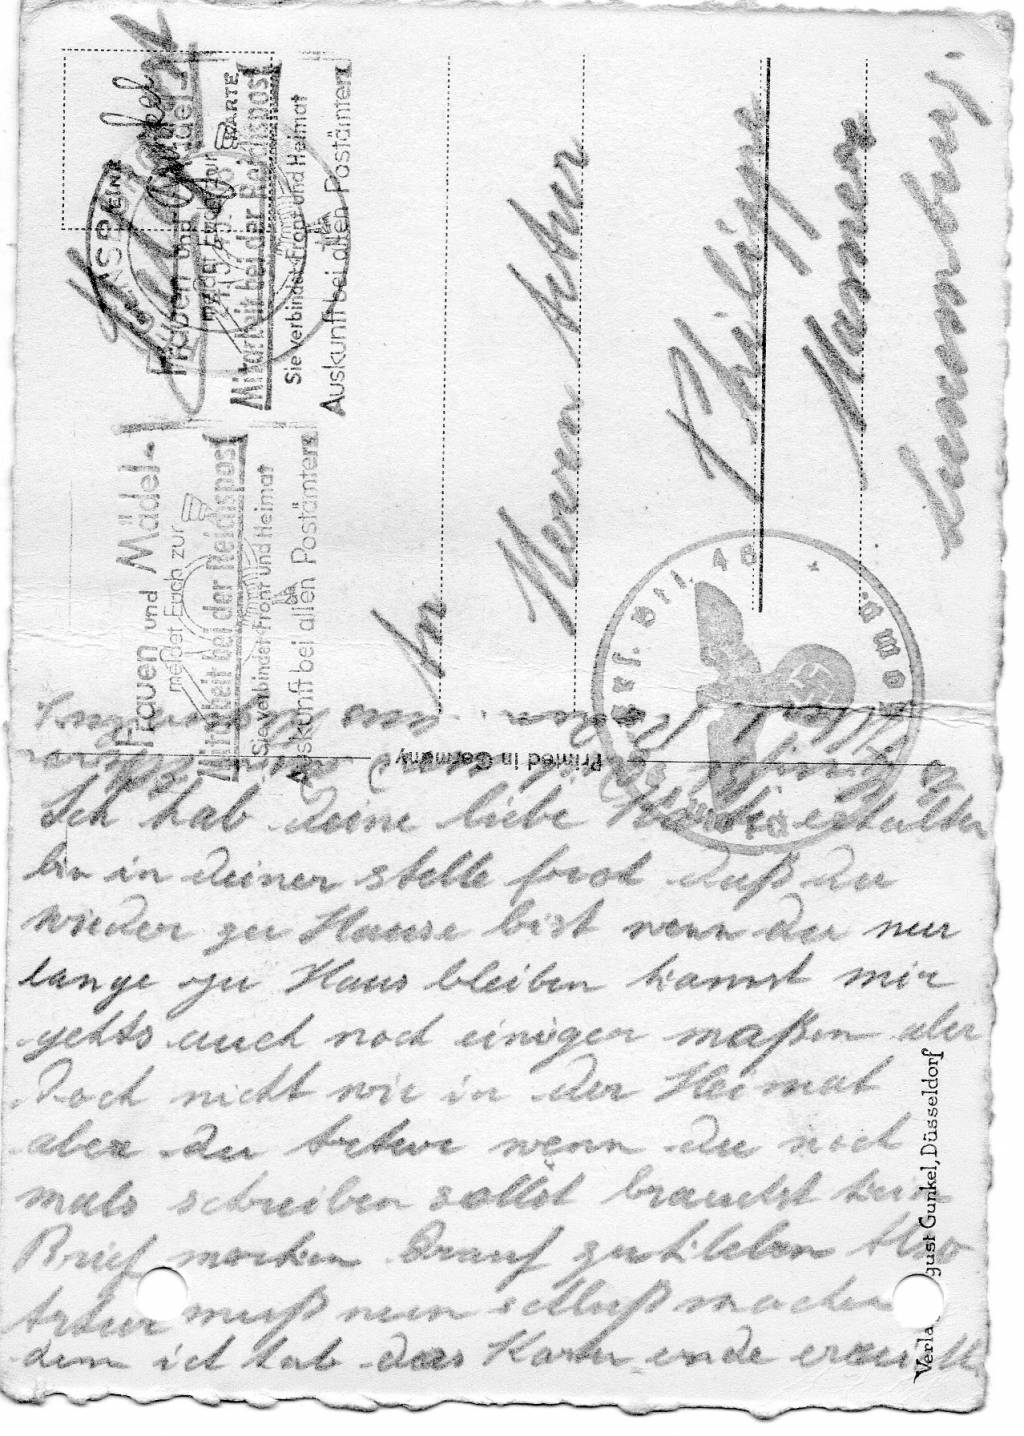 Frauen und Mädel
meldet Euch zur
Mitarbeit bei der Reichspost
Sie verbindet Front und Heimat
Auskunft bei allen Postämtern
Frauen und Mädel
meldet Euch zur
Mitarbeit bei der Reichspost
Sie verbindet Front und Heimat
Auskunft bei allen Postämtern
An
Herrn Artur
Philippe
Mamer
Luxemburg
Printed in Germany
Ich hab deine liebe Karte erhalten
bin in deiner stelle froh daß du
wieder zu Hause bist wenn du nur
lange zu Haus bleiben kannst mir
gehts auch noch einiger maßen aber
doch nicht wie in der Heimat
aber du Artur wenn du noch
mals schreiben sollst brauchst kein
Brief marken drauf zu kleben Also
Artur muß nun schluß machen
denn ich hab das Karten ende erreicht
Verla gust Gunkel, Düsseldorf